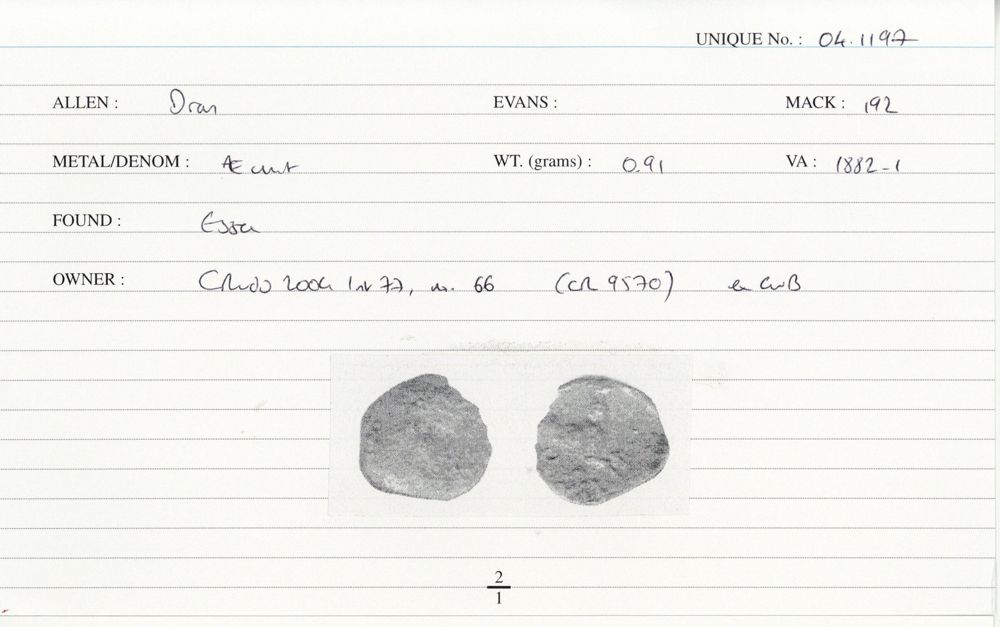 UNIQUE No. : 04.1197
ALLEN : EVANS : MACK : 192
METAL/DENOM : Æ unit WT. (grams) : 0.91 VA : 1882-1
FOUND : Essex
OWNER : 2004 77, no. 66 (CR 9570) ex
2
1